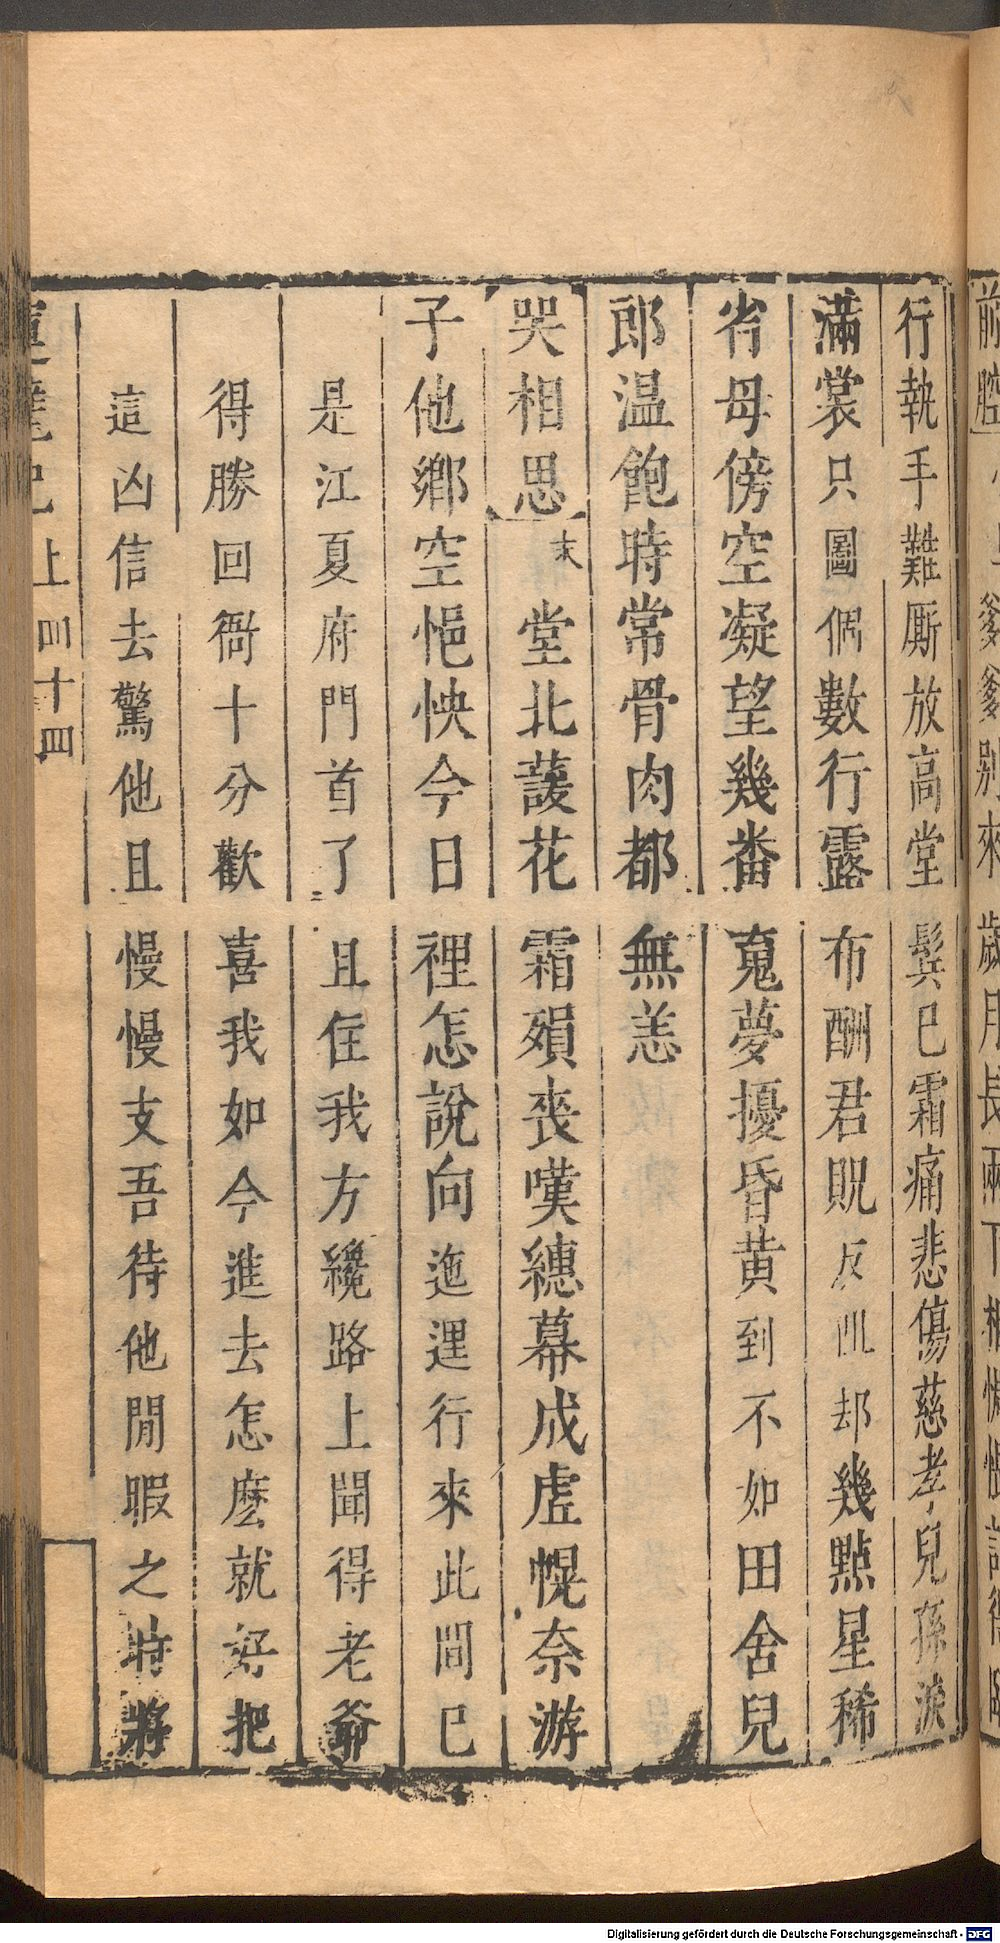 前腔
爹爹別來歲月長兩下相
行執手難厮放高堂鬂巳霜痛悲傷慈孝兒孫淚
滿裳只圖個數行露布酬君貺反 却幾點星稀
省母傍空凝望幾畨䰟夢擾昏黃到不如田舍兒
郎温飽時常骨肉都無恙
哭相思末堂北萲花霜殞丧嘆繐幕成虛幌奈游
子他鄉空悒怏今日裡怎說向迤逕行來此間巳
是江夏府門首了且住我方纔路上聞得老爺
得勝回衙十分歡喜我如今進去怎麽就好把
這凶信去驚他且慢慢支吾待他閒暇之時將
記上四十四
Digitalisierung gefördert durch die Deutsche Forschungsgemeinschaft - DFG